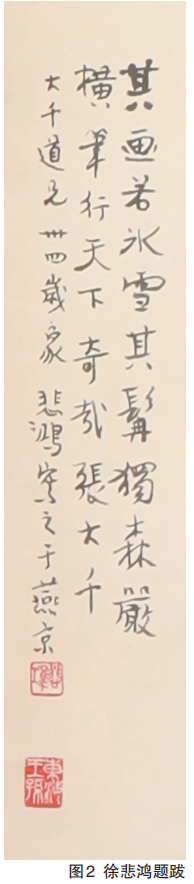 其画若冰雪其髯獨森嚴
橫筆行天下奇哉張大千
大千道兄卅四歲象 悲鴻寫之于燕京
東海王孫
图2 徐悲鸿题跋